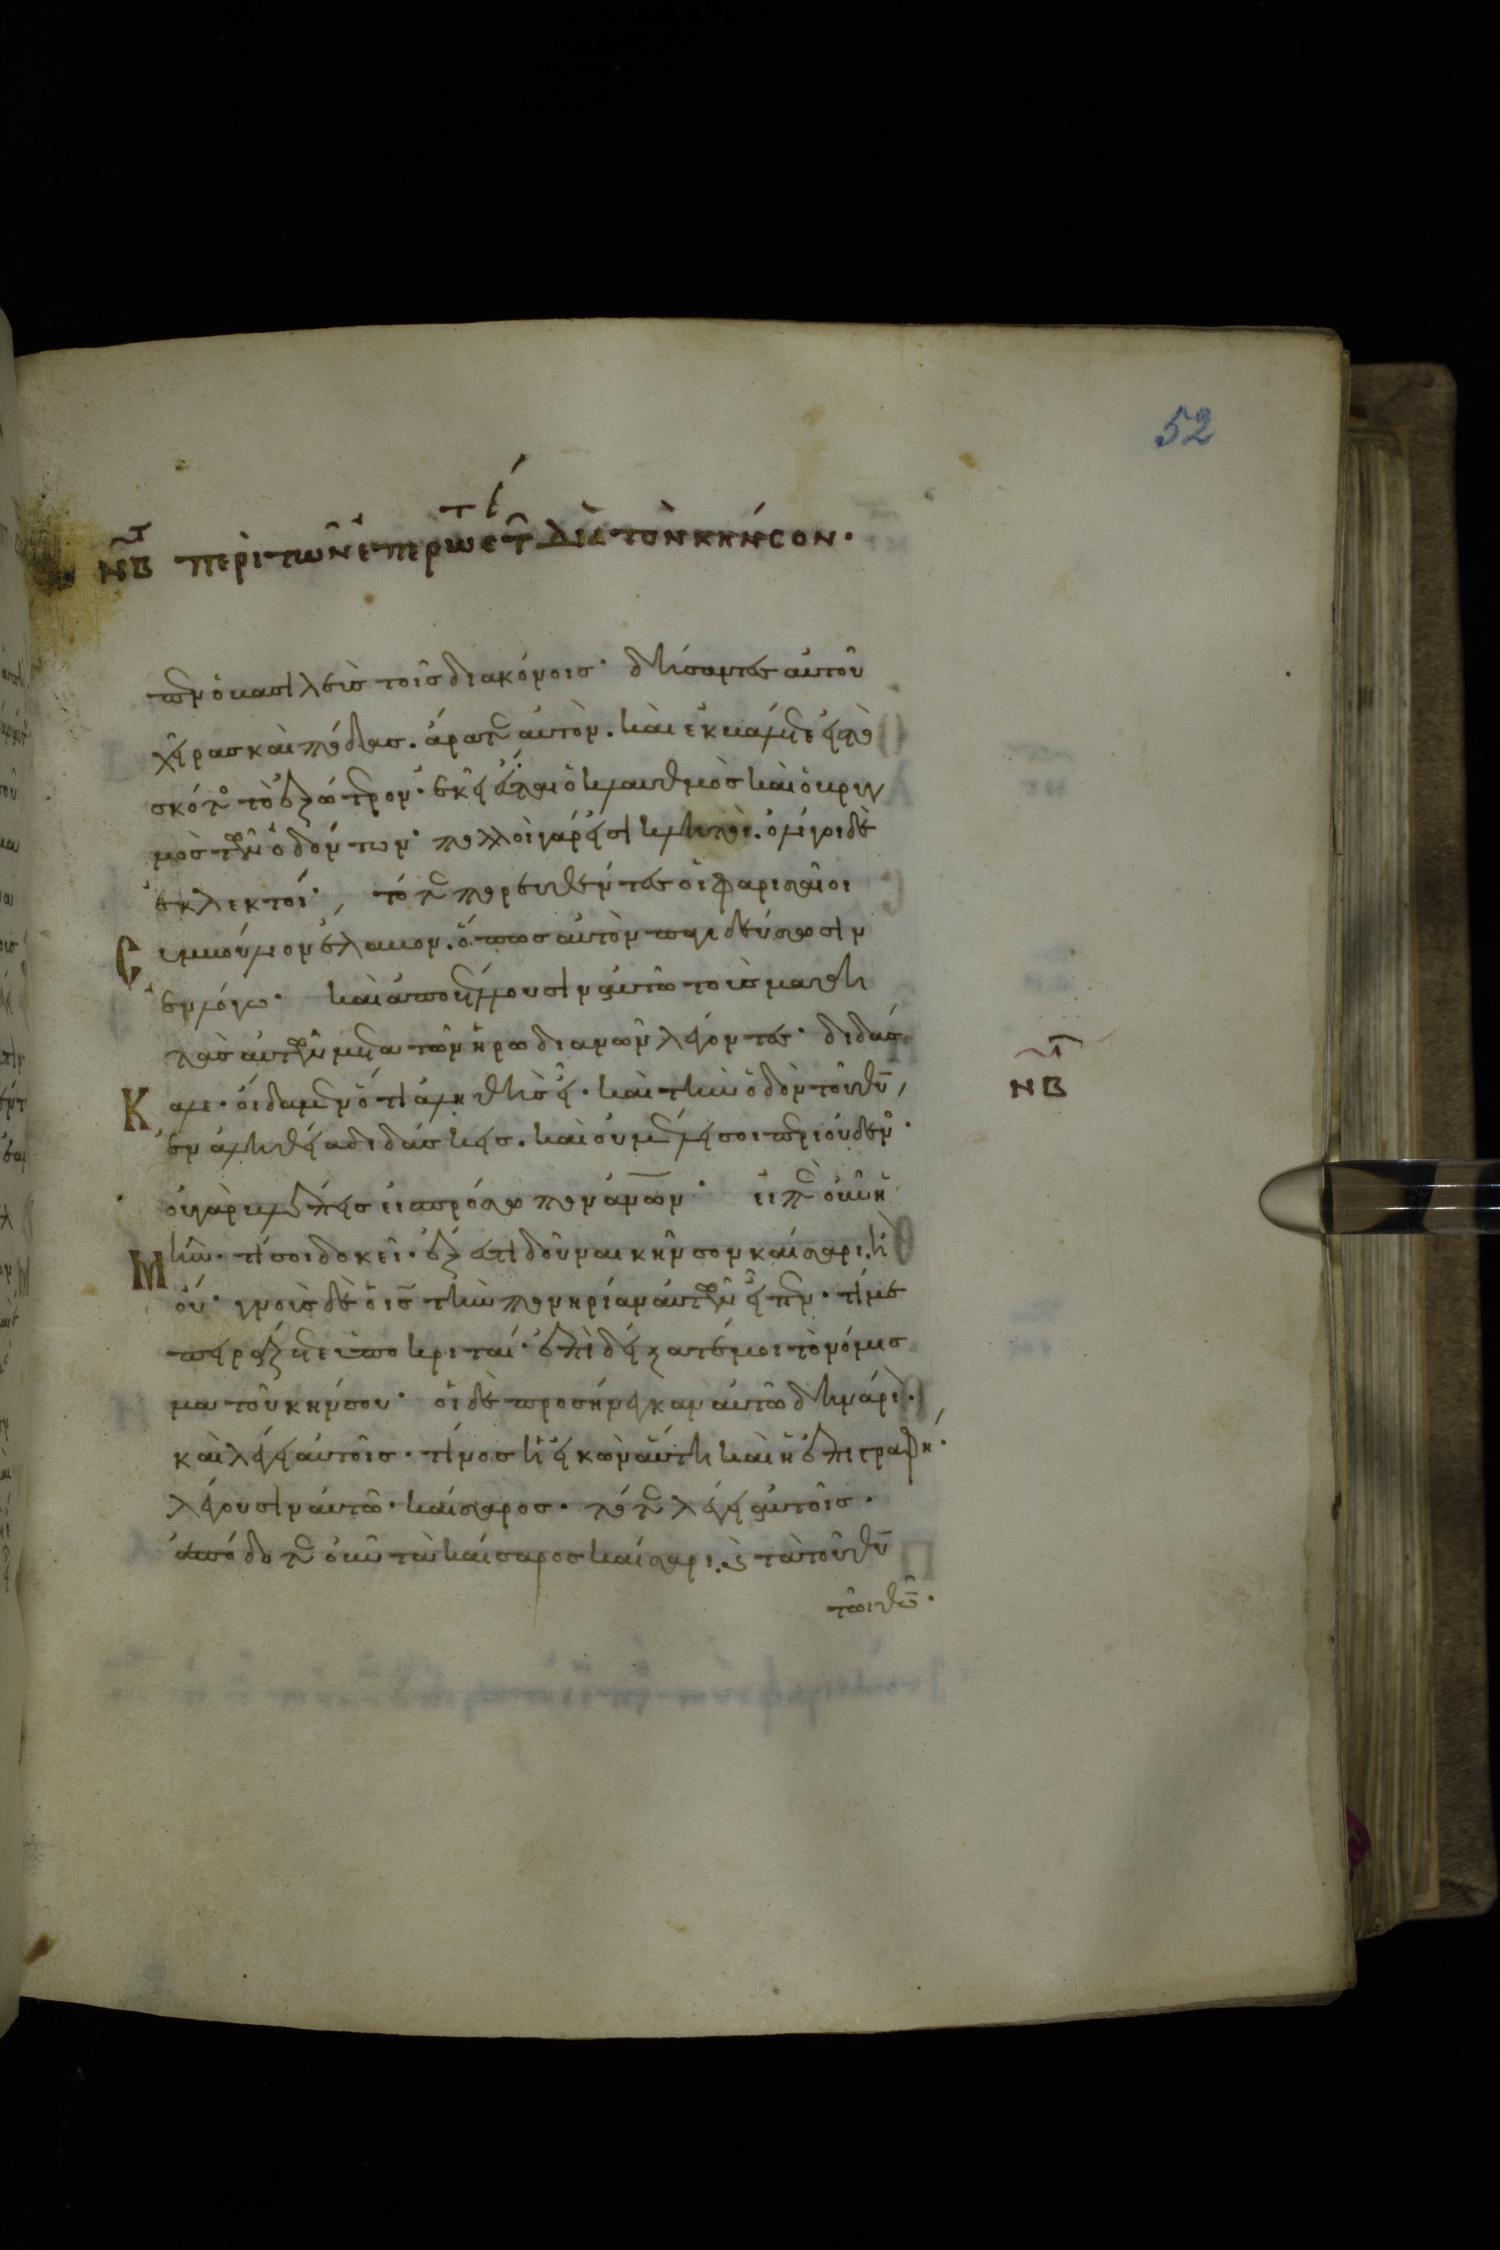 52
ΝΒ περὶ τῶν ἐπερωτ διὰ τὸν κῆνσον·
πεν ὁ βασιλεὺς τοῖς διακόνοις· δήσαντες αὐτοῦ
χεῖρας καὶ πόδας· ἄρατε αὐτὸν· καὶ ἐκβάλετε εἰς τὸ
σκότος τὸ ἐξώτερον· ἐκεῖ ἔσται ὁ κλαυθμὸς καὶ ὁ βρυγ
μὸς τῶν ὀδόντων· πολλοὶ γάρ εἰσι κλητοὶ· ὀλίγοι δὲ
ἐκλεκτοί· τότε πορευθέντες οἱ φαρισαῖοι
Συμβούλιον ἔλαβον· ὅπως αὐτὸν παγιδεύσωσιν
ἐν λόγω· καὶ ἀποστέλλουσιν αὐτῶ τοὺς μαθη
τὰς αὐτῶν μετὰ τῶν ἡρωδιανῶν λέγοντες· διδάσ
Καλε· οἴδαμεν ὅτι ἀληθὴς εἶ· καὶ τὴν ὁδὸν τοῦ θυ
ἐν ἀληθεία διδάσκεις· καὶ οὐ μέλει σοι περὶ οὐδενός·
οὐ γὰρ βλέπεις εἰς πρόσωπον ανων· εἰπὲ οὖν ἡ
Μῖν· τί σοι δοκεῖ· ἔξεστι δοῦναι κῆνσον καίσαρι· ἢ
οὔ· γνοὺς δὲ ὁ ις τὴν πονηρίαν αὐτῶν εἶπεν· τί με
πειράζετε ὑποκριταί· ἐπιδείξατέ μοι τὸ νόμισ
μα τοῦ κήνσου· οἱ δὲ προσήνεγκαν αὐτῶ δηνάριον·
καὶ λέγει αὐτοῖς· τίνος ἡ εἰκὼν αὕτη καὶ ἡ ἐπιγραφή·
λέγουσιν αὐτῶ· καίσαρος· τότε λέγει αὐτοῖς·
ἀπόδοτε οὖν τὰ καίσαρος καίσαρι· καὶ τὰ τοῦ θυ
τῶι θω·
ΝΒ